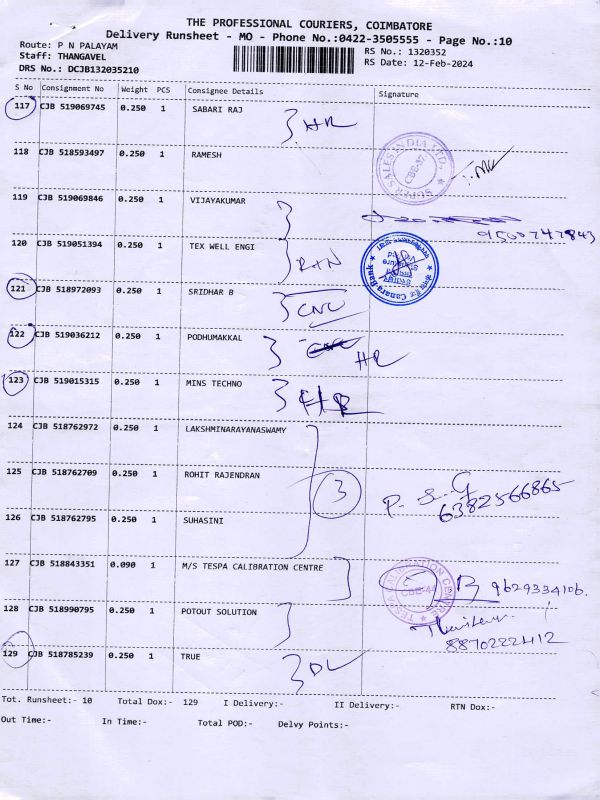 THE PROFESSIONAL COURIERS, COIMBATORE
Delivery Runsheet - MO - Phone No.:0422-3505555 - Page No.:10
Route: P N PALAYAM
RS No.: 1320352
Staff: THANGAVEL
RS Date: 12-Feb-2024
DRS No.: DCJB132035210
S No Consignment No Weight PCS Consignee Details Signature
117 CJB 519069745 0.250 1 SABARI RAJ HR
118 CJB 518593497 0.250 1 RAMESH
SUPER SALES INDIA LTD. CBE-47
119 CJB 519069846 0.250 1 VIJAYAKUMAR
9500747843
120 CJB 519051394 0.250 1 TEX WELL ENGI
Canara Bank
121 CJB 518972093 0.250 1 SRIDHAR B CNC
122 CJB 519036212 0.250 1 PODHUMAKKAL HR
123 CJB 519015315 0.250 1 MINS TECHNO HR
124 CJB 518762972 0.250 1 LAKSHMINARAYANASWAMY
125 CJB 518762709 0.250 1 ROHIT RAJENDRAN 3 P. S. G
6382566865
126 CJB 518762795 0.250 1 SUHASINI
127 CJB 518843351 0.090 1 M/S TESPA CALIBRATION CENTRE
TESPA CALIBRATION CENTRE CBE-44
9629334106.
128 CJB 518990795 0.250 1 POTOUT SOLUTION
8870222412
129 CJB 518785239 0.250 1 TRUE DL
Tot. Runsheet:- 10 Total Dox:- 129 I Delivery:- II Delivery:- RTN Dox:-
Out Time:- In Time:- Total POD:- Delvy Points:-